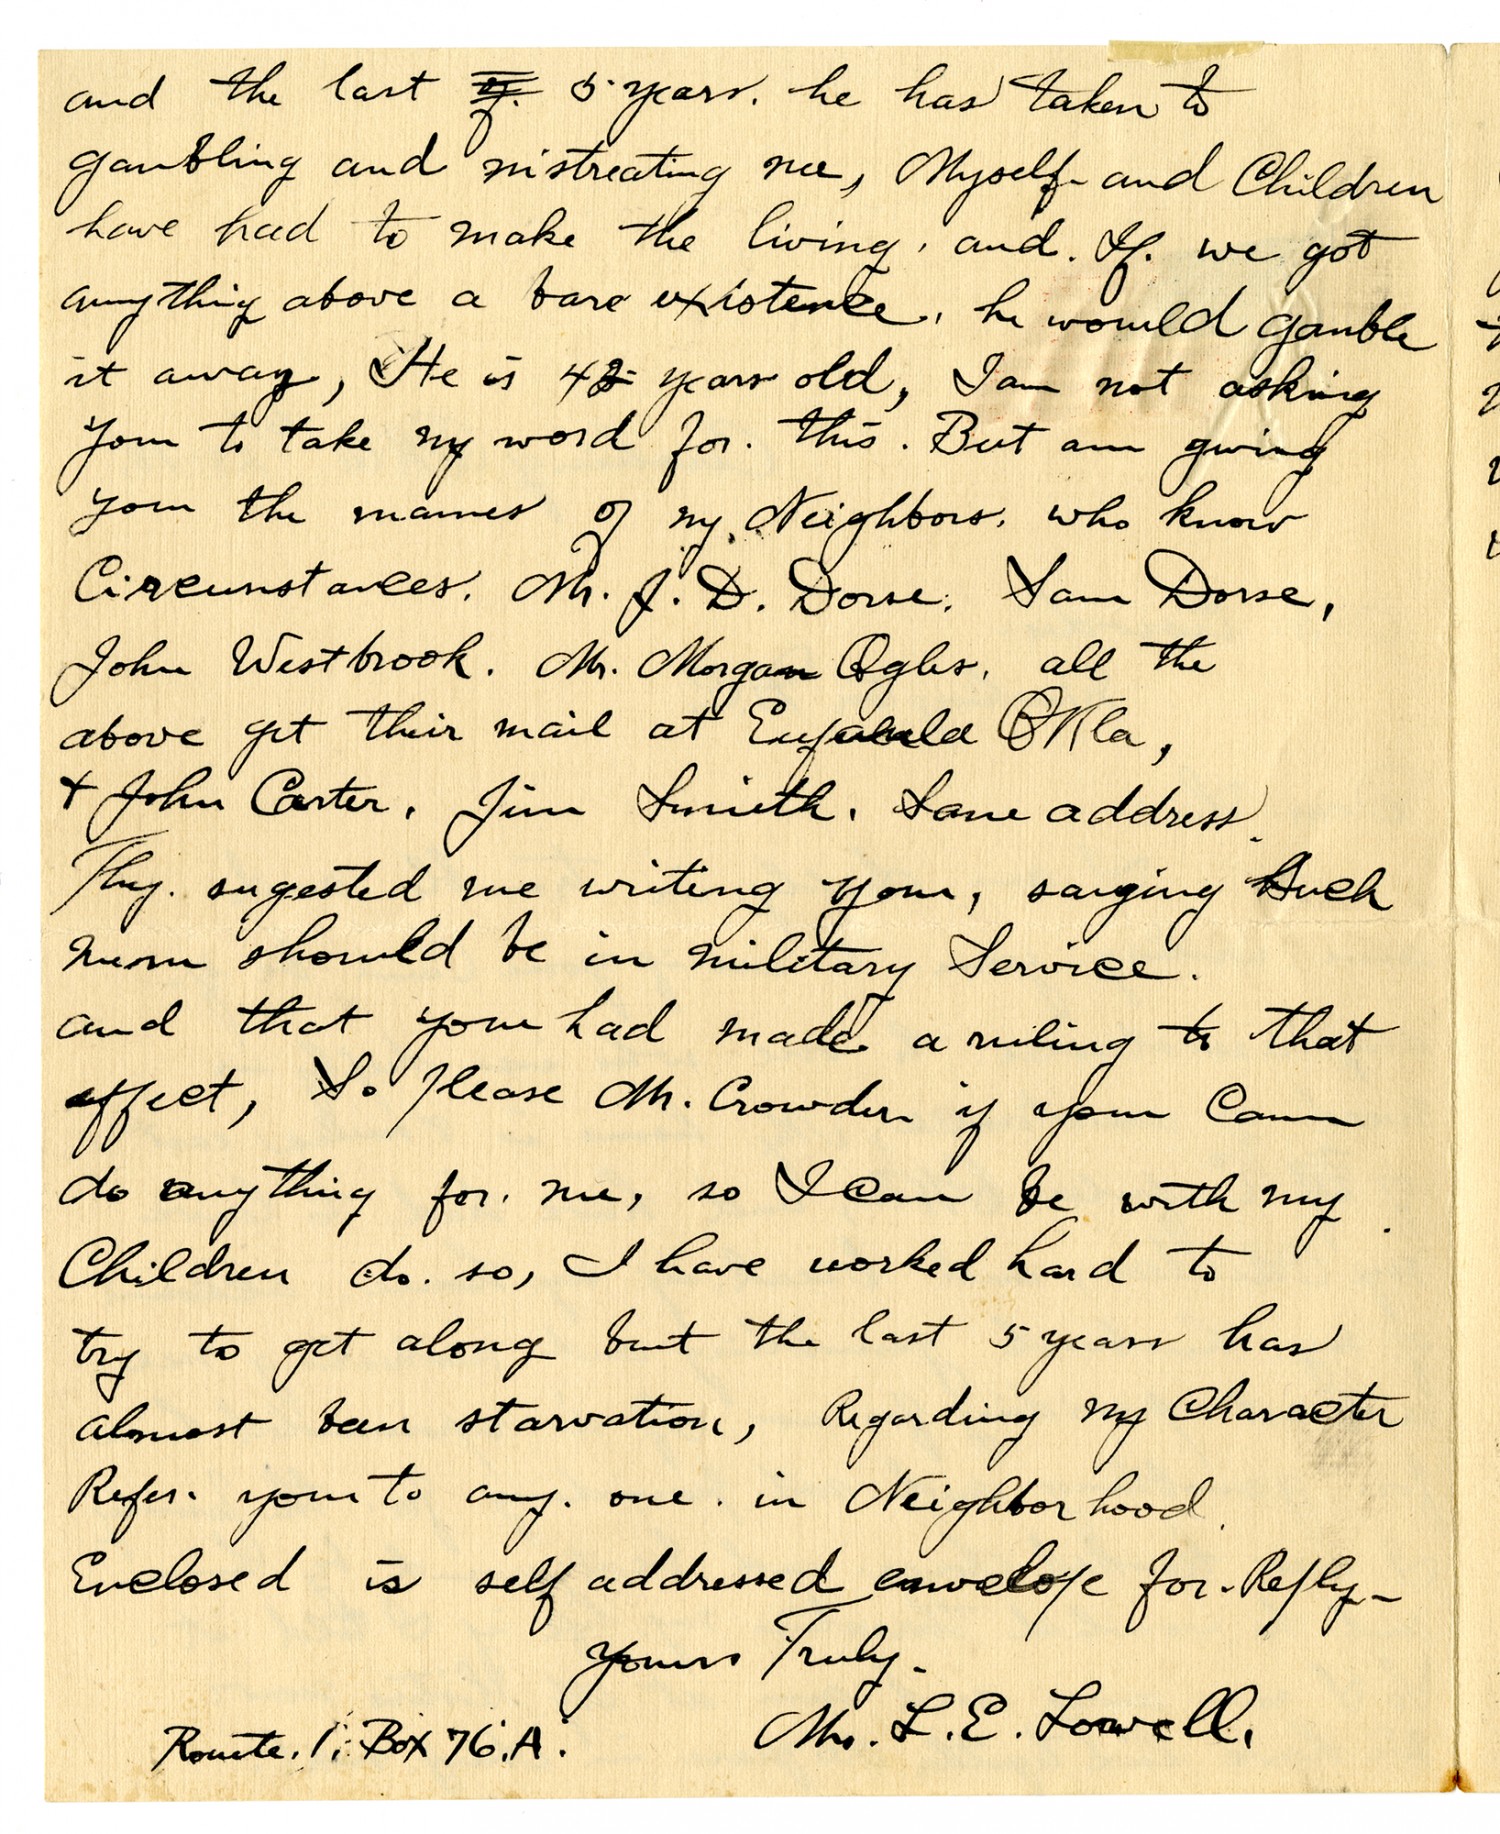 and the last 5 years. he has taken to
gambling and mistreating me, Myself and Children
have had to make the living. and. If. we got
anything above a bare existence, he would gamble
it away, He is 42 years old, I am not asking
you to take my word for. this. But am giving
you the names of my Neighbors. who know
Circumstances. Mr. J. D. Dorse. Sam Dorse,
John Westbrook. Mr. Morgan Ogles. all the
above get their mail at Eufaula Okla,
+ John Carter. Jim Smieth. Same address.
They. sugested me writing you, saying Such
men should be in military Service.
and that you had made a ruling to that
effect, So please Mr. Crowder if you Can
do anything for. me, so I can be with my
Children do. so, I have worked hard to
try to get along but the last 5 years has
almost been starvation, Regarding my Character
Refer. you to any. one. in Neighborhood.
Enclosed is self addressed envelope for. Reply-
yours Truly.
Mrs. L. E. Lowell.
Route. 1. Box 76. A.